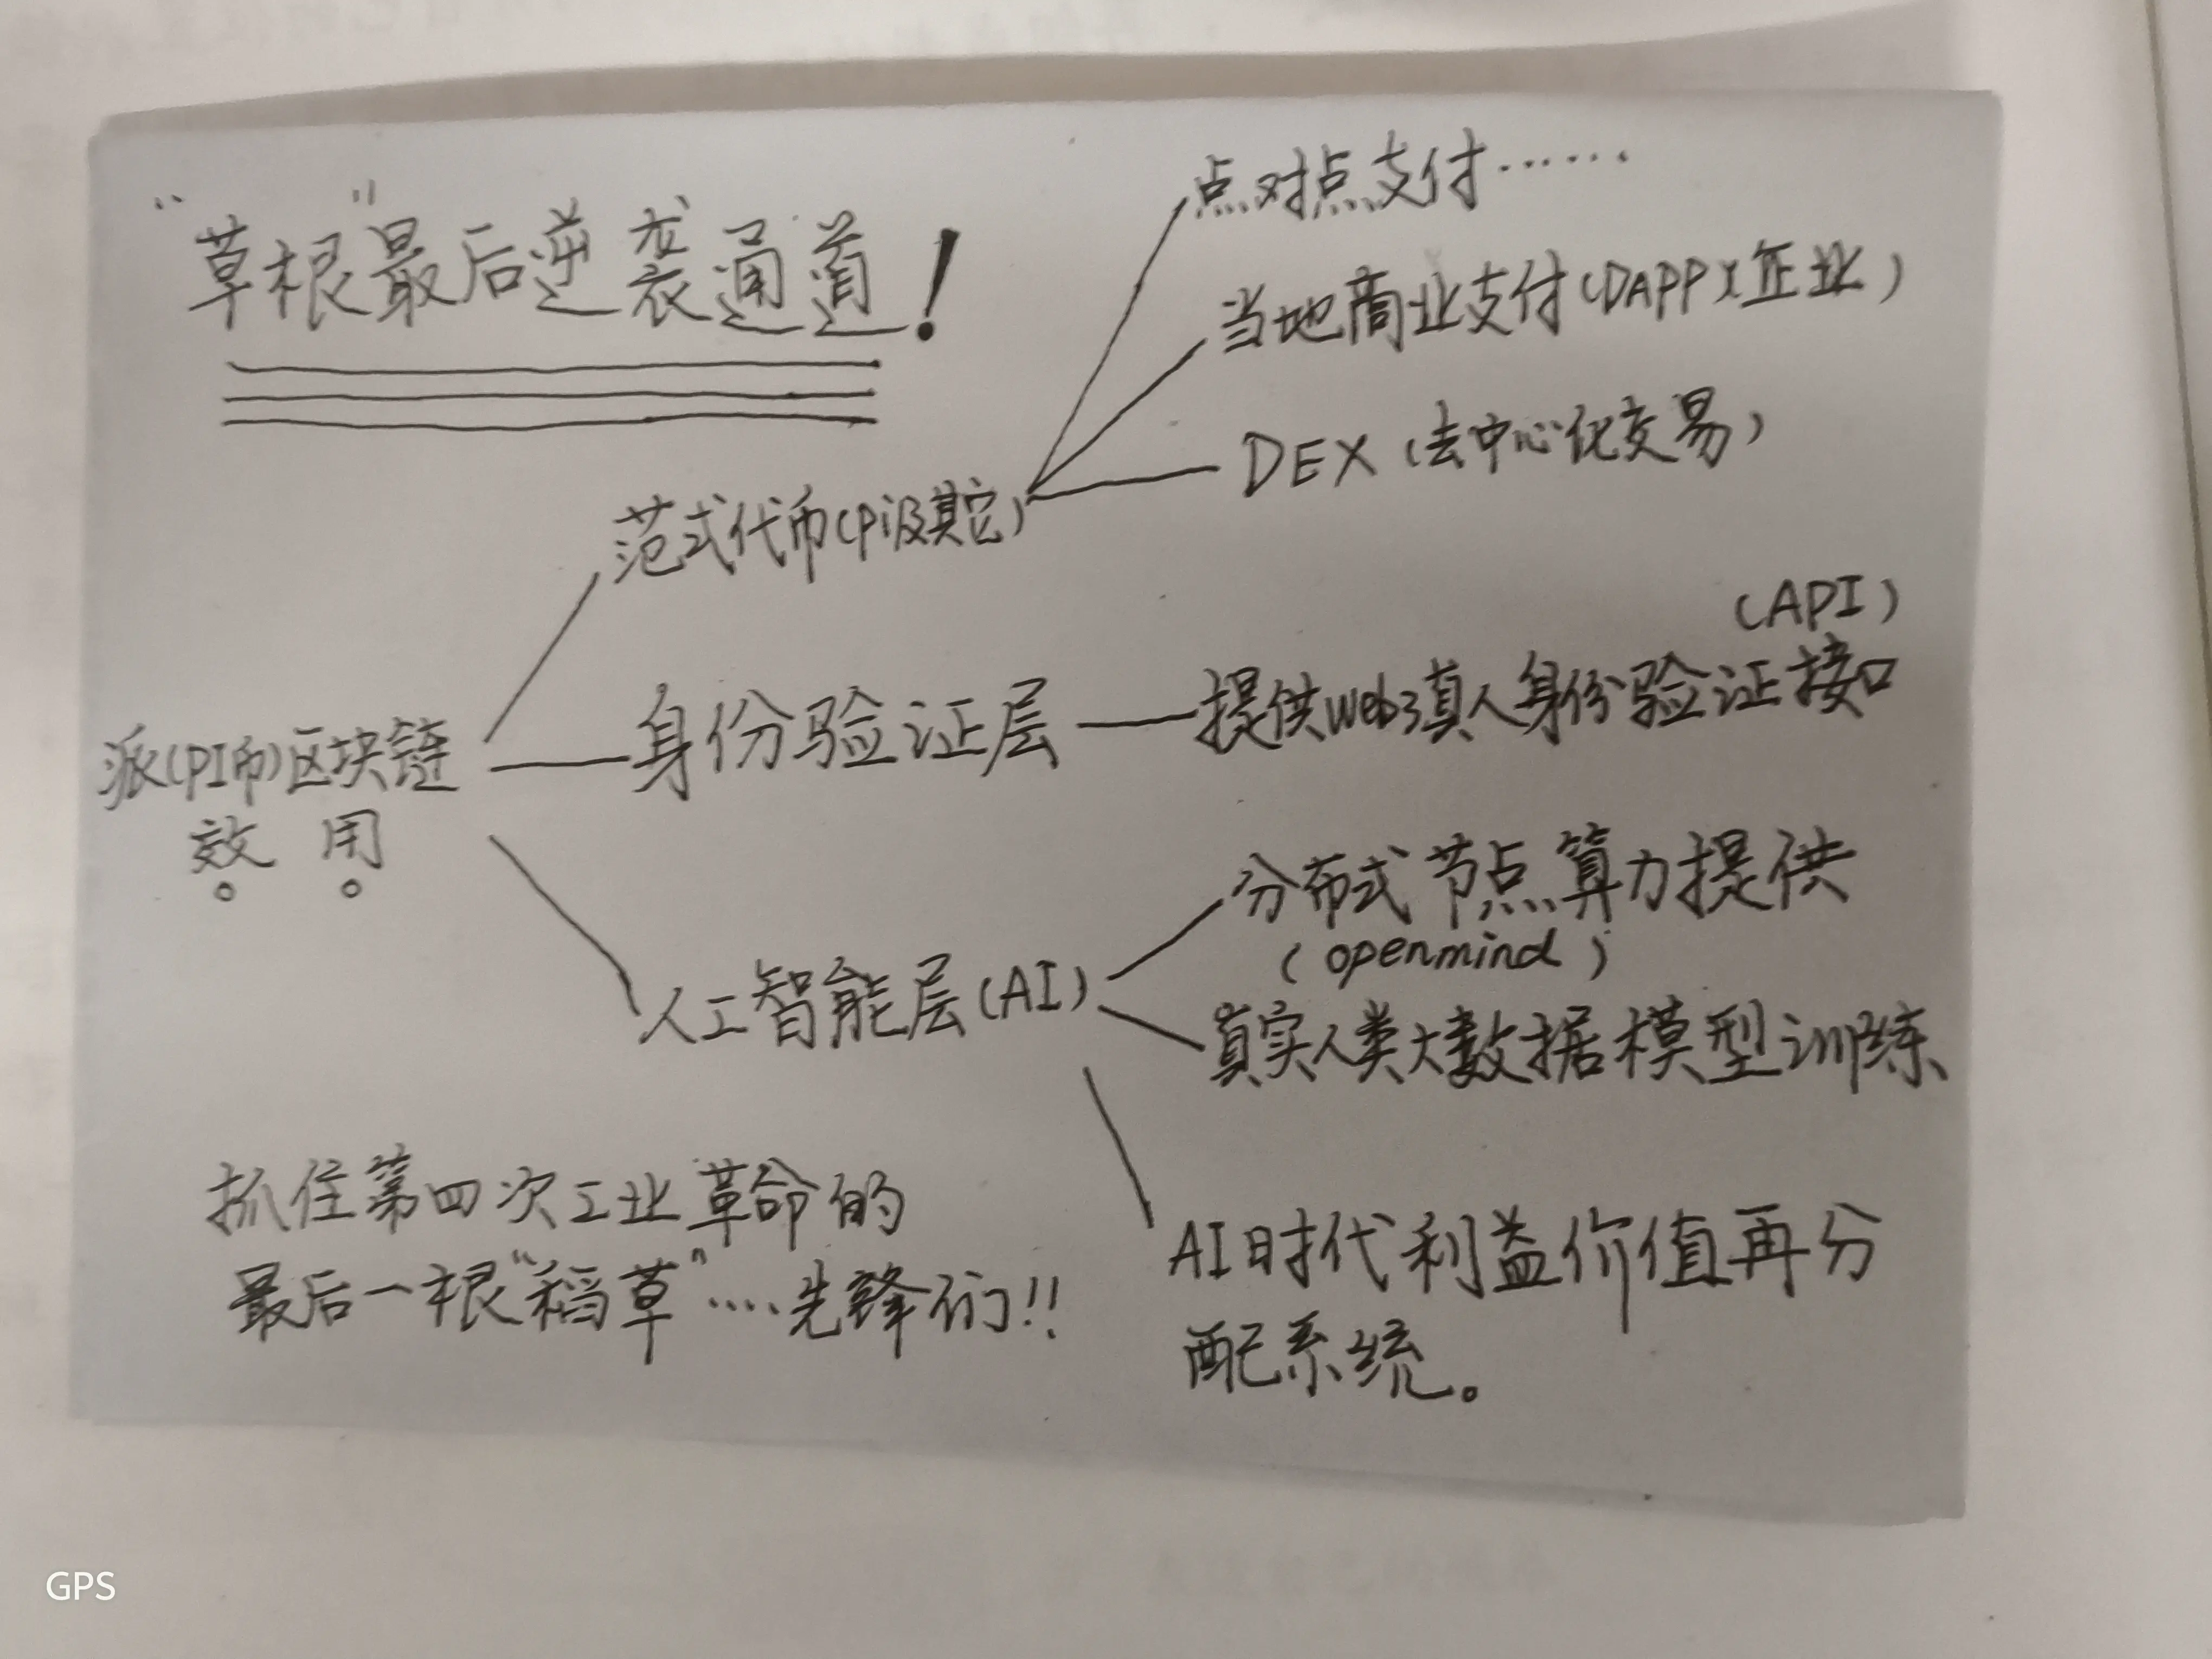 “草根”最后逆袭通道!
点对点支付……
当地商业支付(DAPP及企业)
DEX(去中心化交易)
范式代币(Pi及其它)
(API)
身份验证层
提供web3真人身份验证接口
派(PI币)区块链
效用
分布式节点算力提供
(openmind)
人工智能层(AI)
真实人类大数据模型训练
AI时代利益价值再分
配系统。
抓住第四次工业革命的
最后一根“稻草”....先锋们!!
GPS